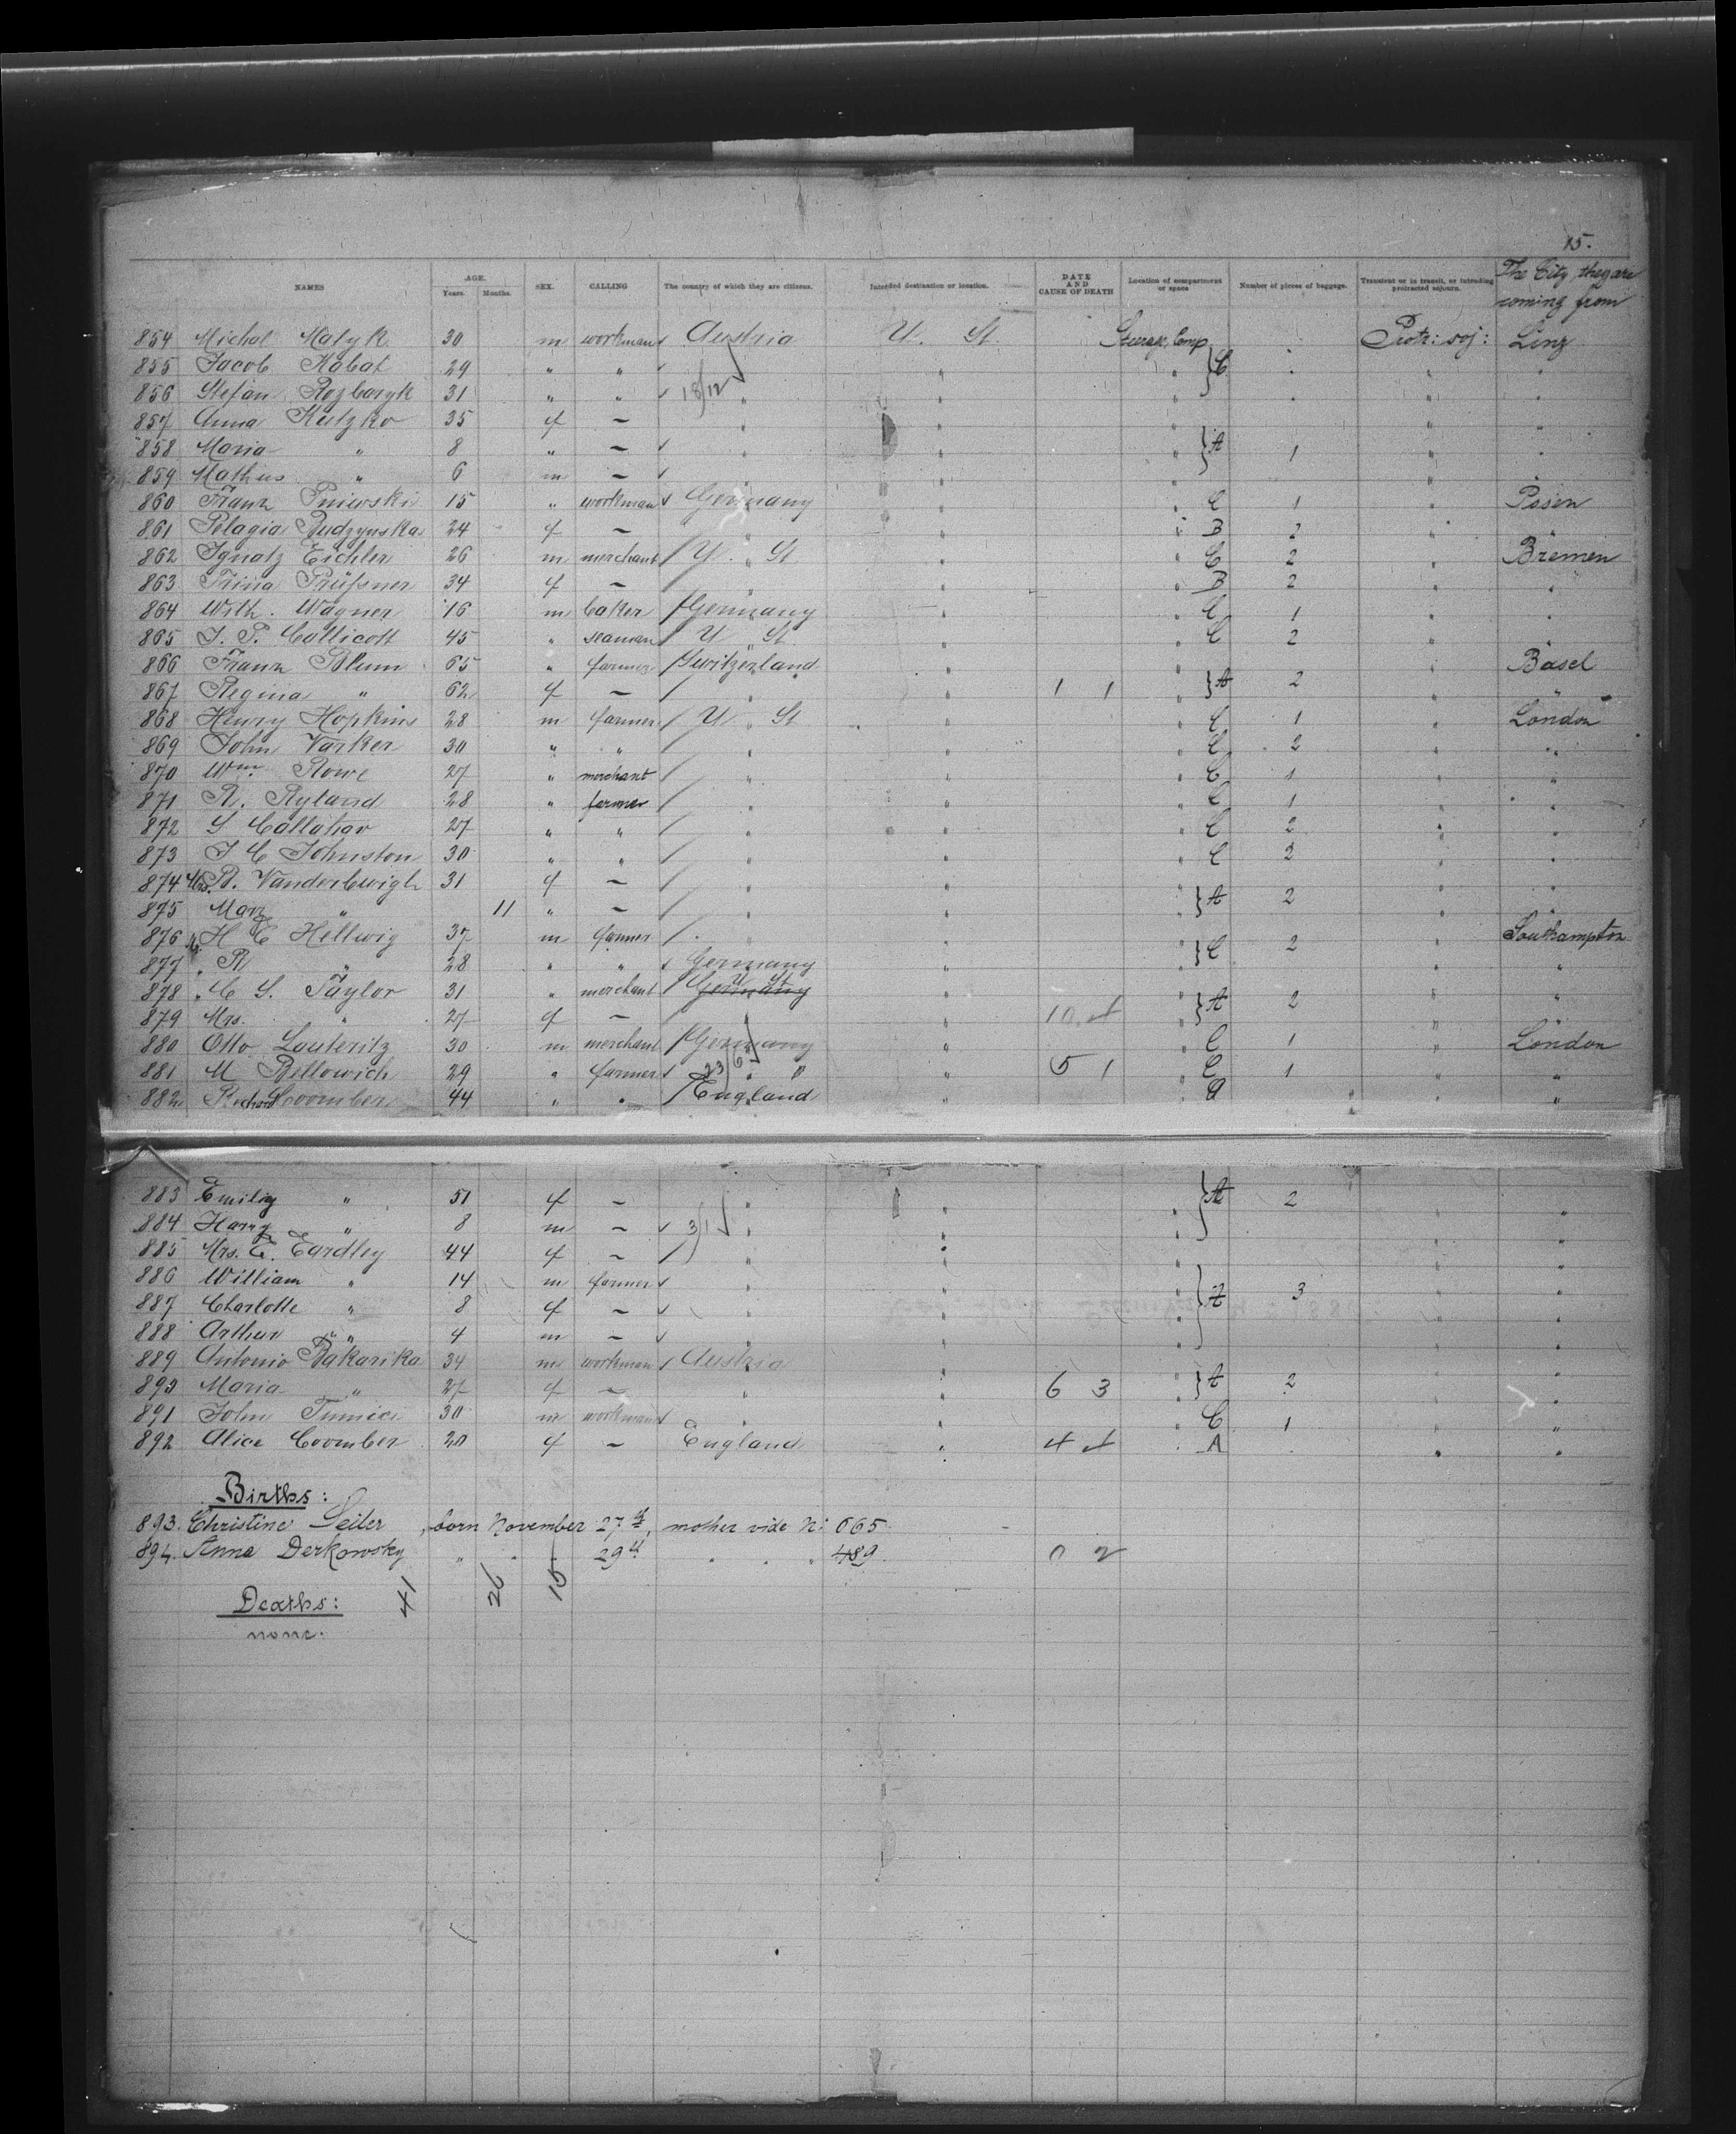 15.
NAMES AGE. Years. Months. SEX. CALLING The country of which they are citizens. Intended destination or location. DATE AND CAUSE OF DEATH Location of compartment or space Number of pieces of baggage. Transient or in transit, or intending protracted sojourn. The City they are coming from
854 Michal Matyk 30 m workman Austria U. St. Steerage Comp Protr: soj: Linz
855 Jacob Kabat 29 " " " C " "
856 Stefan Rozborzyk 31 " " 18/12 " " " " "
857 Anna Kutzko 35 f — " " " "
858 Maria " 8 " — " " A 1 " "
859 Mathus " 6 m — " " " "
860 Franz Pniewski 15 " workman Germany " " C 1 " Posen
861 Pelagia Rudzynska 24 f — " " " B 2 " "
862 Ignatz Eichler 26 m merchant U. St " " C 2 " Bremen
863 Trina Prüssner 34 f — " " " B 2 " "
864 Wilh. Wagner 16 m baker Germany " " C 1 " "
865 J. P. Collicott 45 " seaman U St " " C 2 " "
866 Franz Blum 65 " farmer Switzerland " " " Basel
867 Regina " 62 f — " " 1 1 " A 2 " "
868 Henry Hopkins 28 m farmer U St " " C 1 " London
869 John Varker 30 " " " " " C 2 " "
870 Wm. Rowe 27 " merchant " " " C 1 " "
871 R. Ryland 28 " farmer " " " C 1 " "
872 S Callahan 27 " " " " " C 2 " "
873 J C Johnston 30 " " " " " C 2 " "
874 Mrs. R. Vanderbwigh 31 f — " " " " "
875 Mary " 11 " — " " " A 2 " "
876 H C Hellwig 37 m farmer " " " C 2 " Southampton
877 " R " 28 " " Germany " " " "
878 " C S. Taylor 31 " merchant U St Germany " " " "
879 Mrs. " 27 f — " 10 " A 2 " "
880 Otto Louteritz 30 m merchant Germany " " C 1 " London
881 M Billowich 29 " farmer 23/6 " " 5 1 " C 1 " "
882 Richard Coomber 44 " " England " " " "
883 Emily " 51 f — " " A 2 " "
884 Harry " 8 m — 3/1 " " " " "
885 Mrs. E. Eardley 44 f — " " " " "
886 William " 14 m farmer " " " " "
887 Charlotte " 8 f — " " " A 3 " "
888 Arthur " " 4 m — " " " " "
889 Antonio Bakarika 34 m workman Austria " " " "
890 Maria " 27 f — " " 6 3 " A 2 " "
891 John Tumici 30 m workman " " " C 1 " "
892 Alice Coomber 20 f — England " " A " "
Births:
893. Christine Seiler, born November 27th, mother vide No: 665
894. Anna Derkowsky " " 29th " " " 489 0 2
41 26 15
Deaths:
none.